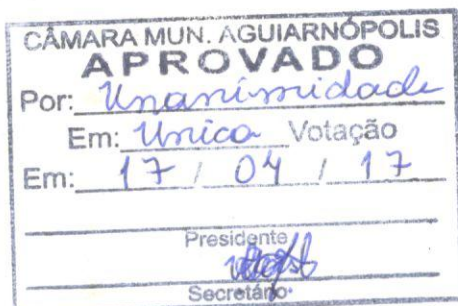 CÂMARA MUN. AGUIARNÓPOLIS
APROVADO
Por: Unanimidade
Em: Unica Votação
Em: 17 / 04 / 17
Presidente
Secretário